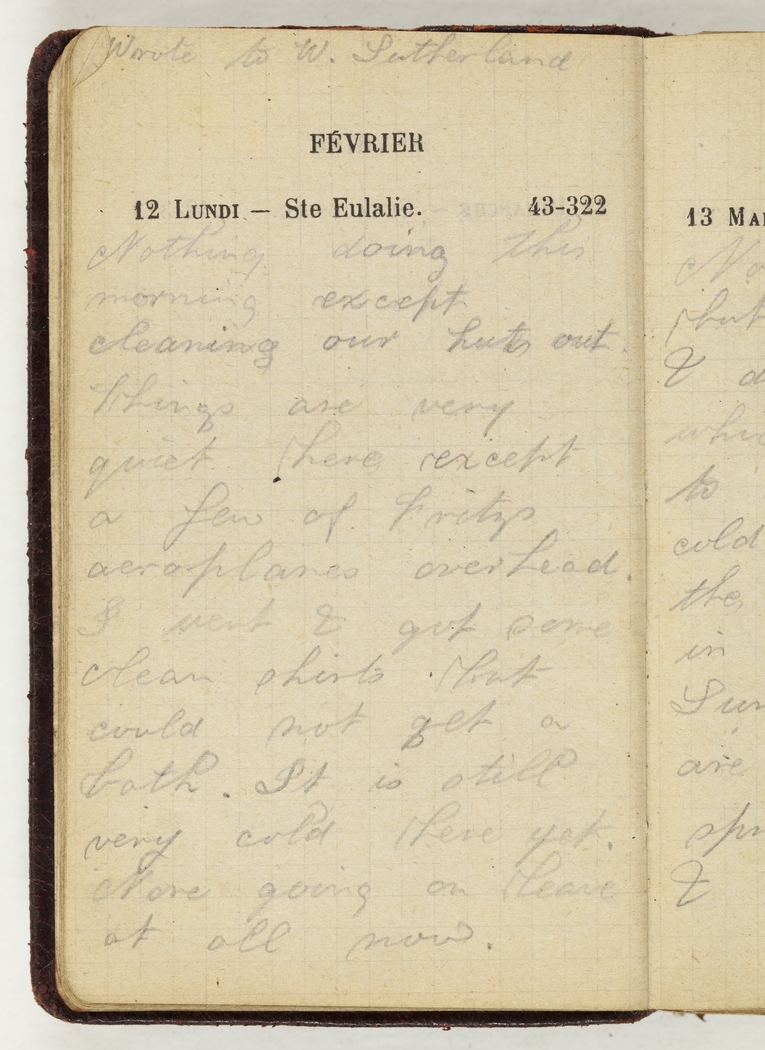 Wrote to W. Sutherland
FÉVRIER
12 LUNDI — Ste Eulalie. 43-322
Nothing doing this
morning except
cleaning our huts out.
Things are very
quiet here except
a few of Fritzs
aeroplanes overhead.
I went & got some
clean shirts but
could not get a
bath. It is still
very cold here yet.
None going on leave
at all now.
13 MA
No
but
& d
whi
to
cold
the
in
Sun
are
spr
&